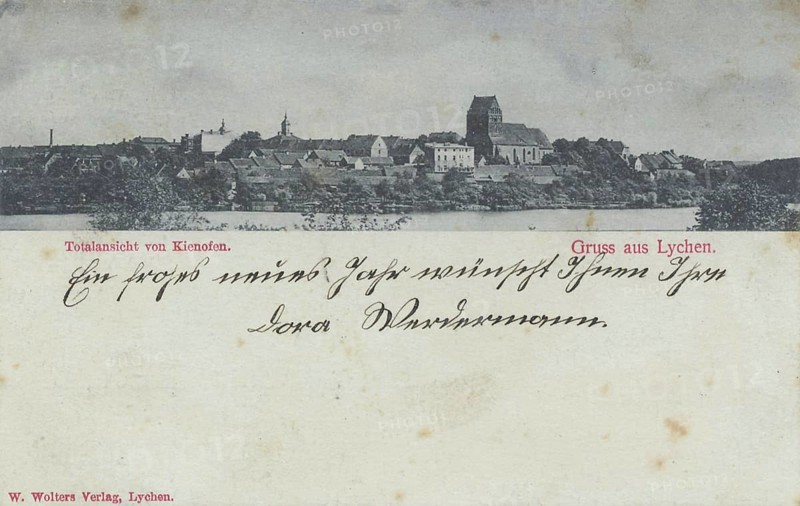 Totalansicht von Kienofen.
Gruss aus Lychen.
Ein frohes neues Jahr wünscht Ihnen Ihre
Dora Werdermann.
W. Wolters Verlag, Lychen.
PHOTO12